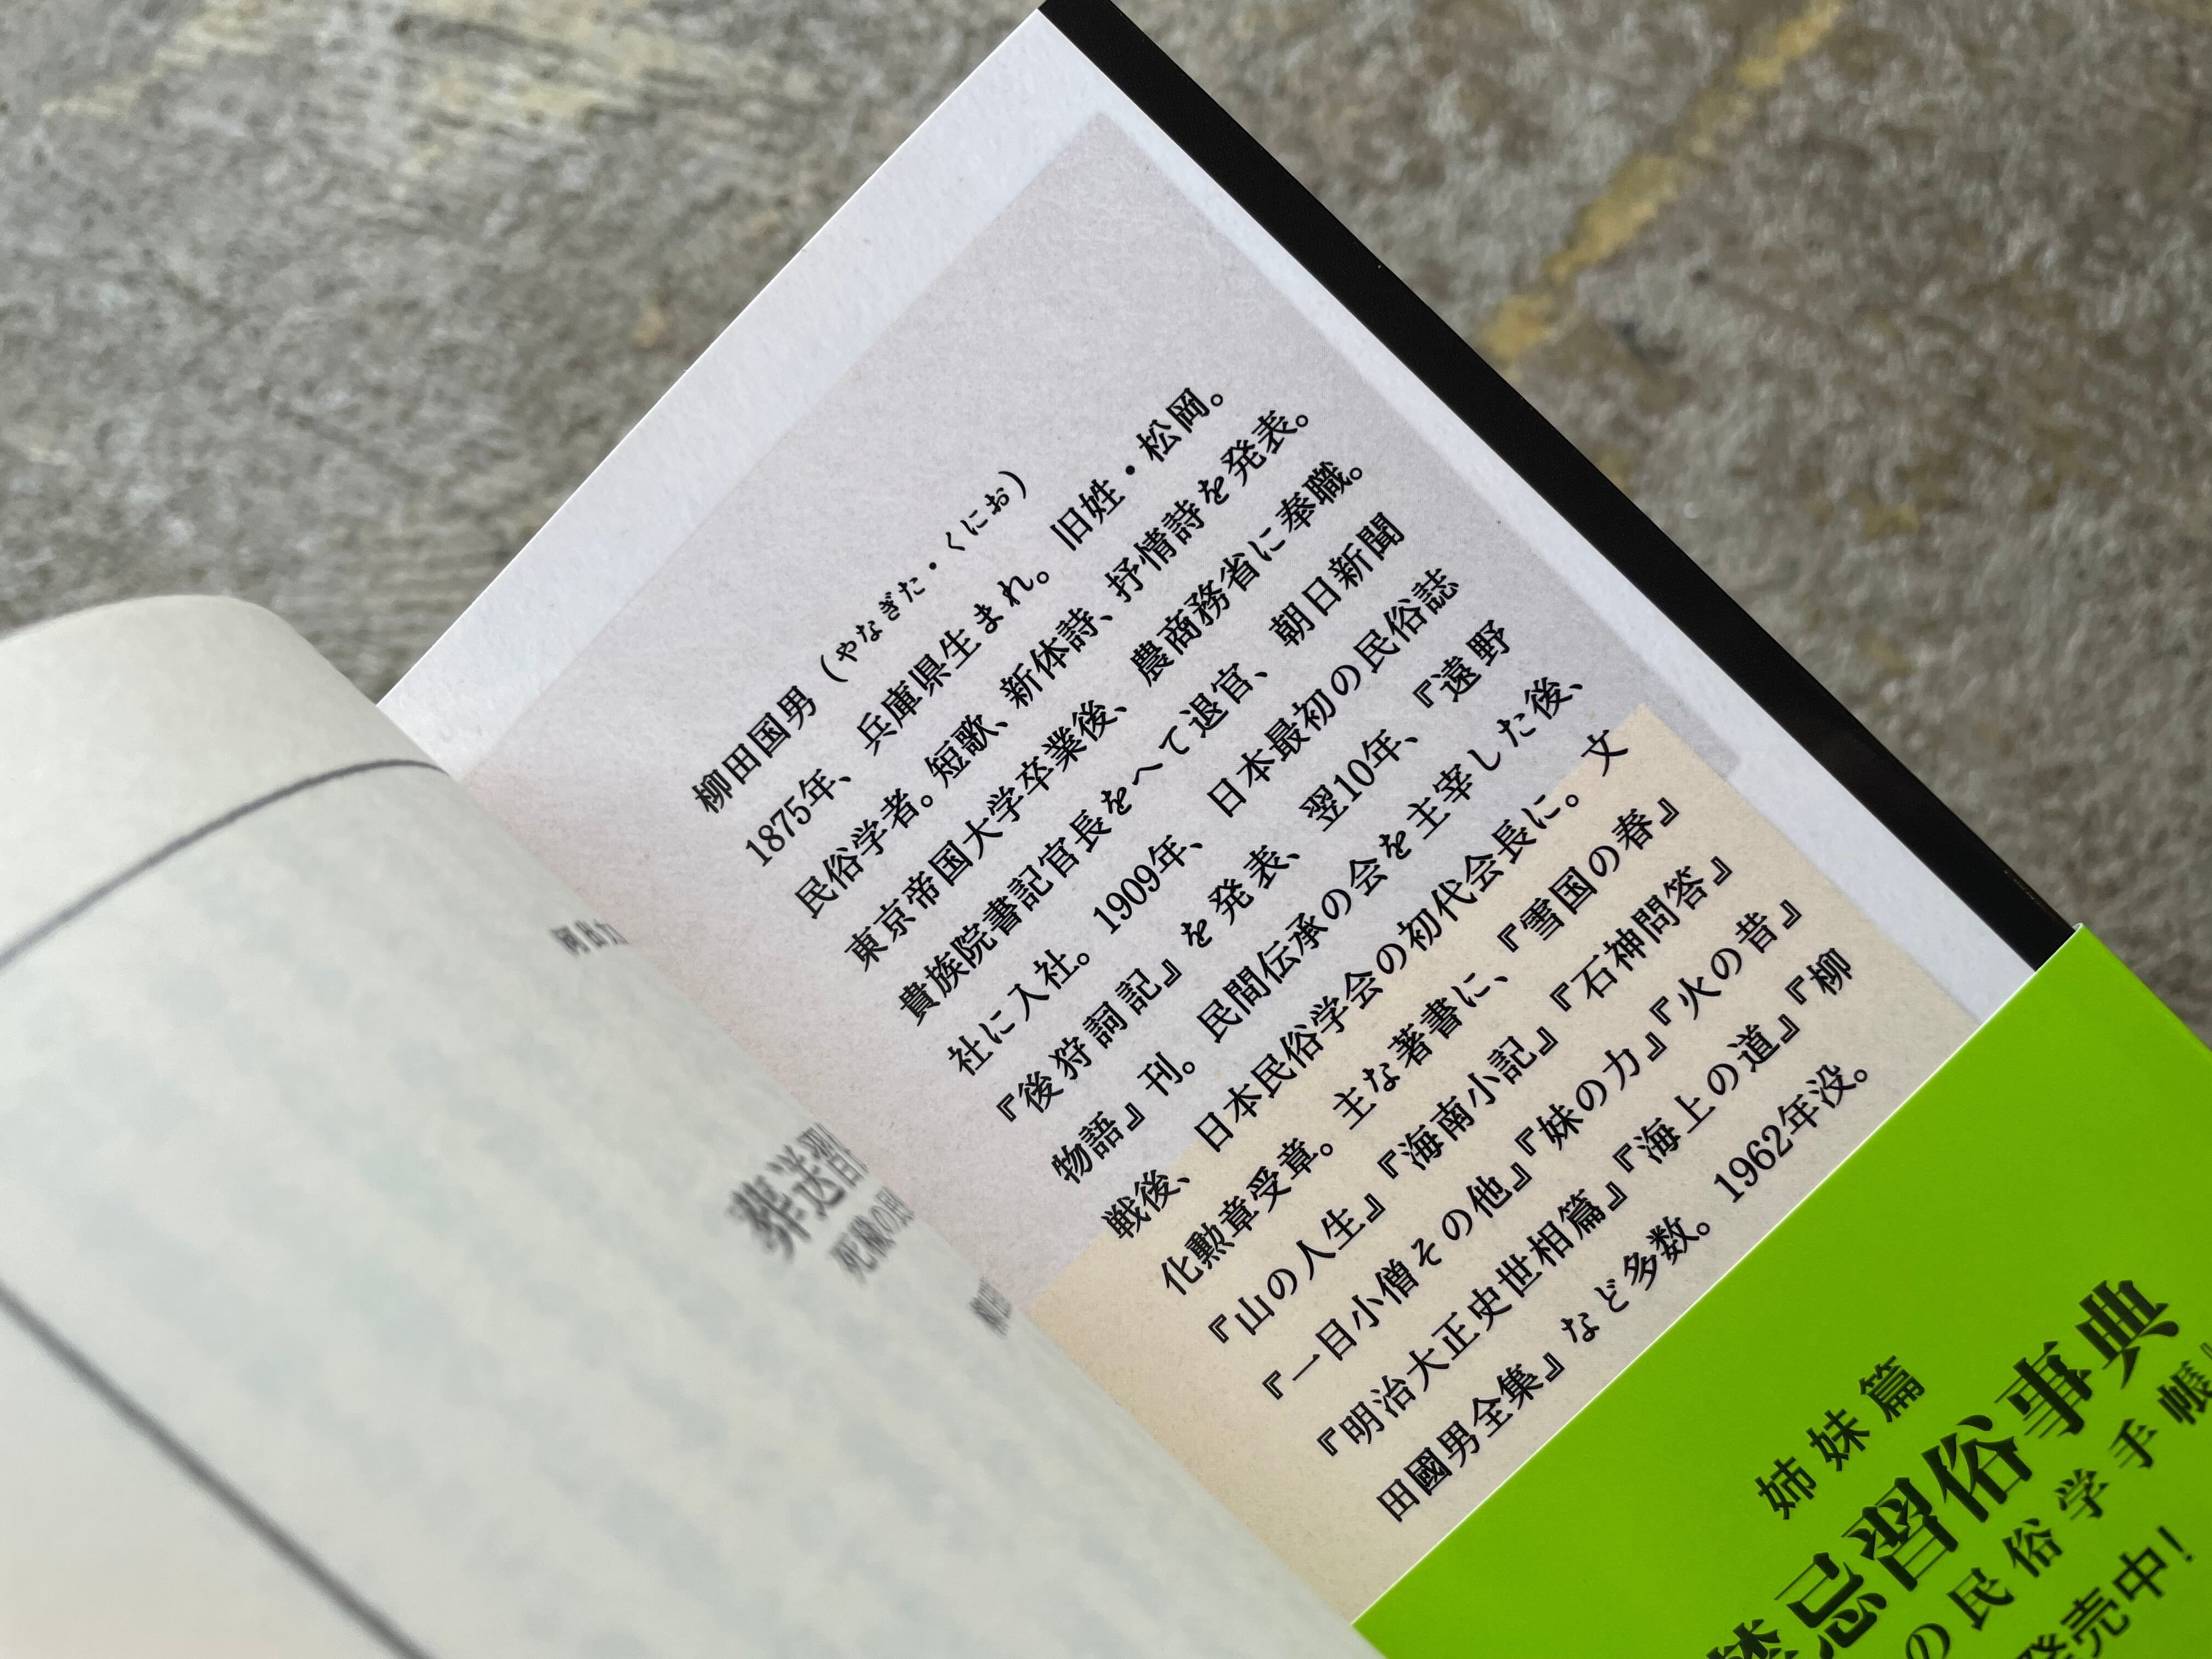 柳田国男（やなぎた・くにお）
1875年、兵庫県生まれ。旧姓・松岡。
民俗学者。短歌、新体詩、抒情詩を発表。
東京帝国大学卒業後、農商務省に奉職。
貴族院書記官長をへて退官、朝日新聞
社に入社。1909年、日本最初の民俗誌
『後狩詞記』を発表、翌10年、『遠野
物語』刊。民間伝承の会を主宰した後、
戦後、日本民俗学会の初代会長に。文
化勲章受章。主な著書に、『雪国の春』
『山の人生』『海南小記』『石神問答』
『一目小僧その他』『妹の力』『火の昔』
『明治大正史世相篇』『海上の道』『柳
田國男全集』など多数。1962年没。
姉妹篇
禁忌習俗事典
の民俗学手帳
発売中！
葬送習
死穢の